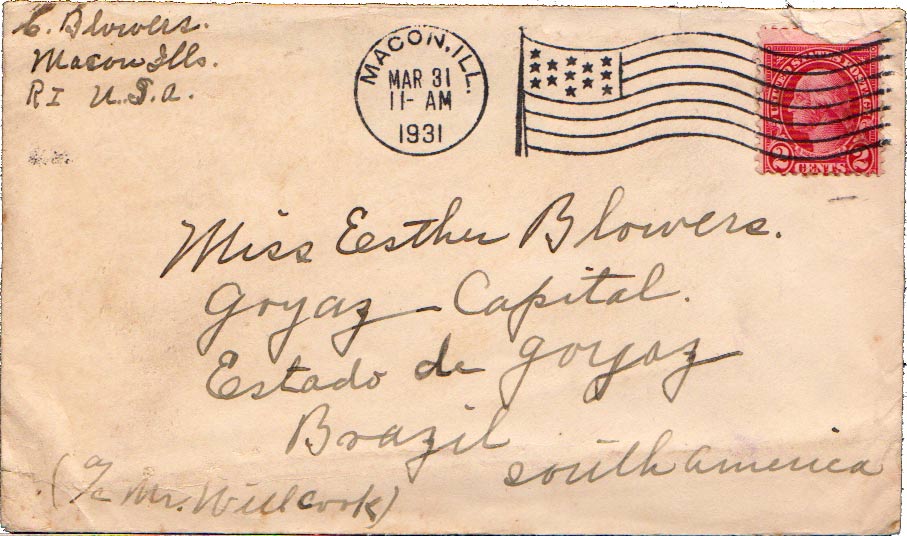 C. Blowers.
Macon Ills.
R I U.S.A.
MACON, ILL.
MAR 31
11-AM
1931
UNITED STATES POSTAGE
2 CENTS 2
Miss Esther Blowers.
Goyaz - Capital.
Estado de Goyaz
Brazil
South America
(℅ Mr. Willcook)